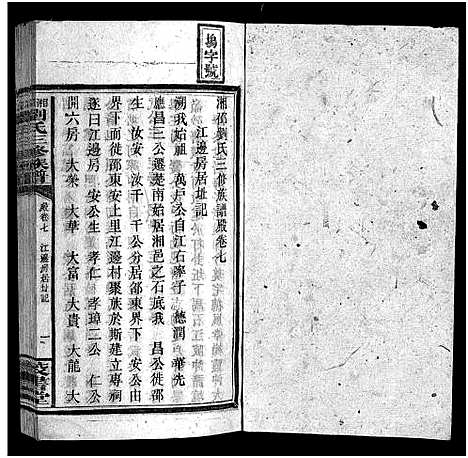 塢字號
湘邵劉氏三修族譜殿卷七
江邊房居址記
溯我始祖 萬戶公自江右
應昌三公遷楚南始居湘邑之石底我 昌公徙邵
生 汝安 汝千 三公分居邵東界下 安公由
界下而徙邵東安上里江邊村聚族於斯建立專祠
遂曰江邊房 安公生 孝仁 孝璋二公 仁公
開六房 大榮 大華 大富 大貴 大龍 大
劉氏三修族譜
殿卷七 江邊房居址記
一